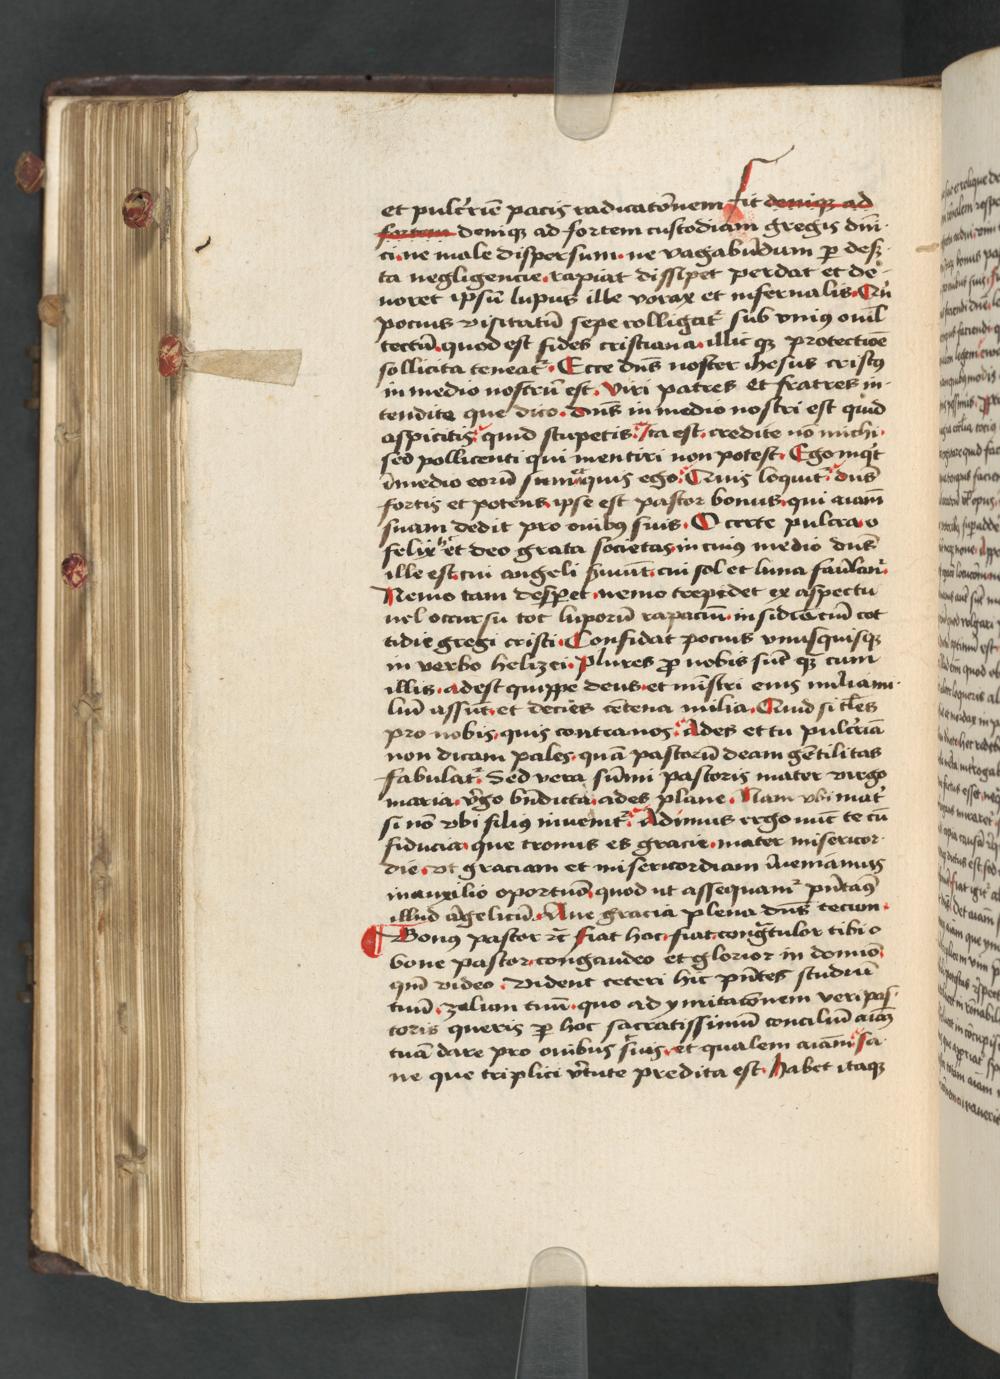 et pulcrie͞ pacis radicato͞nem Sit denique ad
fortem deniqꝫ ad fortem custodiam gregis dn͞i
ci ne male dispersum· ne vagabu͞dum ꝑ des
ta negligencie· rapiat dissipet perdat et de-
uoret ipsu͞ lupus ille vorax et infernalis· Qn͞
pocius visitatu͞ sepe colligat᷑ sub vniꝰ ouil͞
tectu͞· quod est fides cristiana· illic qꝫ protectio͞e
sollicita teneat᷑· Ecce dn͞s noster ihesus cristꝰ
in medio nostru͞ est· Viri patres et fratres in-
tendite que dico· dn͞s in medio nostri est quid
aspicitis· quid stupetis· Ita est· credite no͞ michi·
sed pollicenti qui mentiri non potest· Ego inq͛t
i͞ medio eoru͞ sum· quis ego· Quis loquit᷑· dn͞s
fortis et potens ipse est pastor bonus· qui ai͞am
suam dedit pro ouibꝰ suis· O certe pulcra o
felix et deo grata societas in cuiꝰ medio dn͞s
ille est· cui angeli s͛uiu͞t· cui sol et luna famlan᷑·
Nemo tam desperet· nemo trepidet ex aspectu
uel occursu tot luporu͞ rapaciu͞· insidia͞ciu͞ cot
tidie gregi cristi· Confidat pocius vnusquisqꝫ
in verbo helizei· plures ꝓ nobis su͞t qꝫ cum
illis· adest quippe deus· et mi͞stri eius miliami-
liu͞ assu͞t· et decies ce͞tena milia· Quid si tl͞es
pro nobis, quis contra nos· Ades et tu pulcria͞
non dicam pales· qua͞ pastoru͞ deam ge͞tilitas
fabulat᷑· Sed vera su͞mi pastoris mater virgo
maria· v͛go bn͞dicta· ades plane· Nam vbi mat͛
si no͞ vbi filiꝰ inuenit᷑· Adimus ergo nu͞c te cu͞
fiducia· que tronus es gracie· mater misericor-
die· vt graciam et misericordiam i͞ueniamus
in auxilio oportuno· quod ut assequam᷑ pn͞taꝰ
illud a͞gelicu͞· Aue gracia plena dn͞s tecum·
Bonꝰ pastor ⁊c͞ fiat hoc· fiat· congratulor tibi o
bone pastor· congaudeo et glorior in domino
qm͞ video· Vident ceteri hic pn͞tes studiu͞
tuu͞· zelum tuu͞· quo ad ymitato͞nem veri pas-
toris queris ꝑ hoc sacratissimu͞ conciliu͞ ai͞aꝫ
tua͞ dare pro ouibus suis· et qualem ai͞am sa-
ne que triplici v͛tute predita est· Habet itaqꝫ